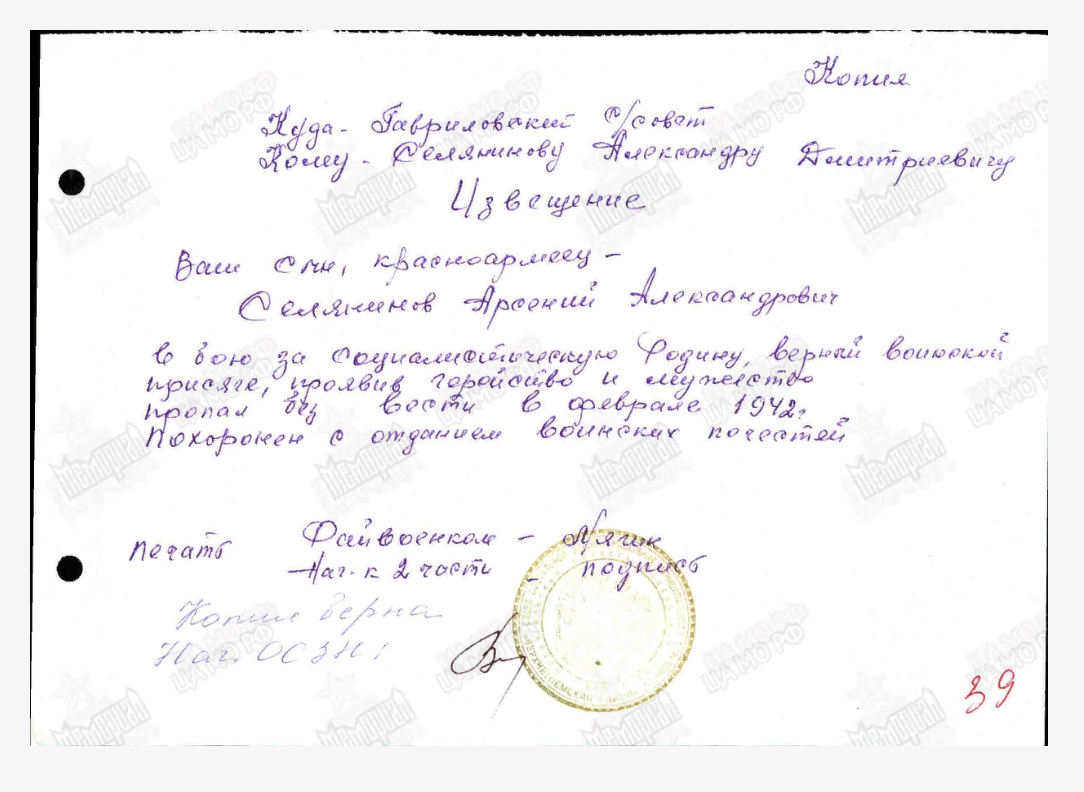 Копия
Куда - Гавриловский с/совет
Кому - Селянинову Александру Дмитриевичу
Извещение
Ваш сын, красноармеец -
Селянинов Арсений Александрович
в бою за социалистическую Родину, верный воинской
присяге, проявив геройство и мужество
пропал без вести в феврале 1942г.
Похоронен с отданием воинских почестей
печать Райвоенком -
Нач. к 2 части - подпись
Копия верна
Нач. ОСЗН:
39
ВЕРХНЕТОЕМСКИЙ
МЕМОРИАЛ
ЦАМО РФ